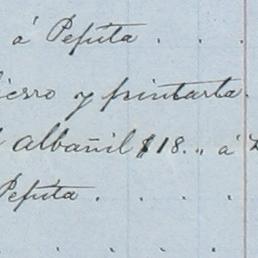 á Pepita . . .
ierro y pintarla.
albañil $18.„ á
Pepita . . . .
. . . . .